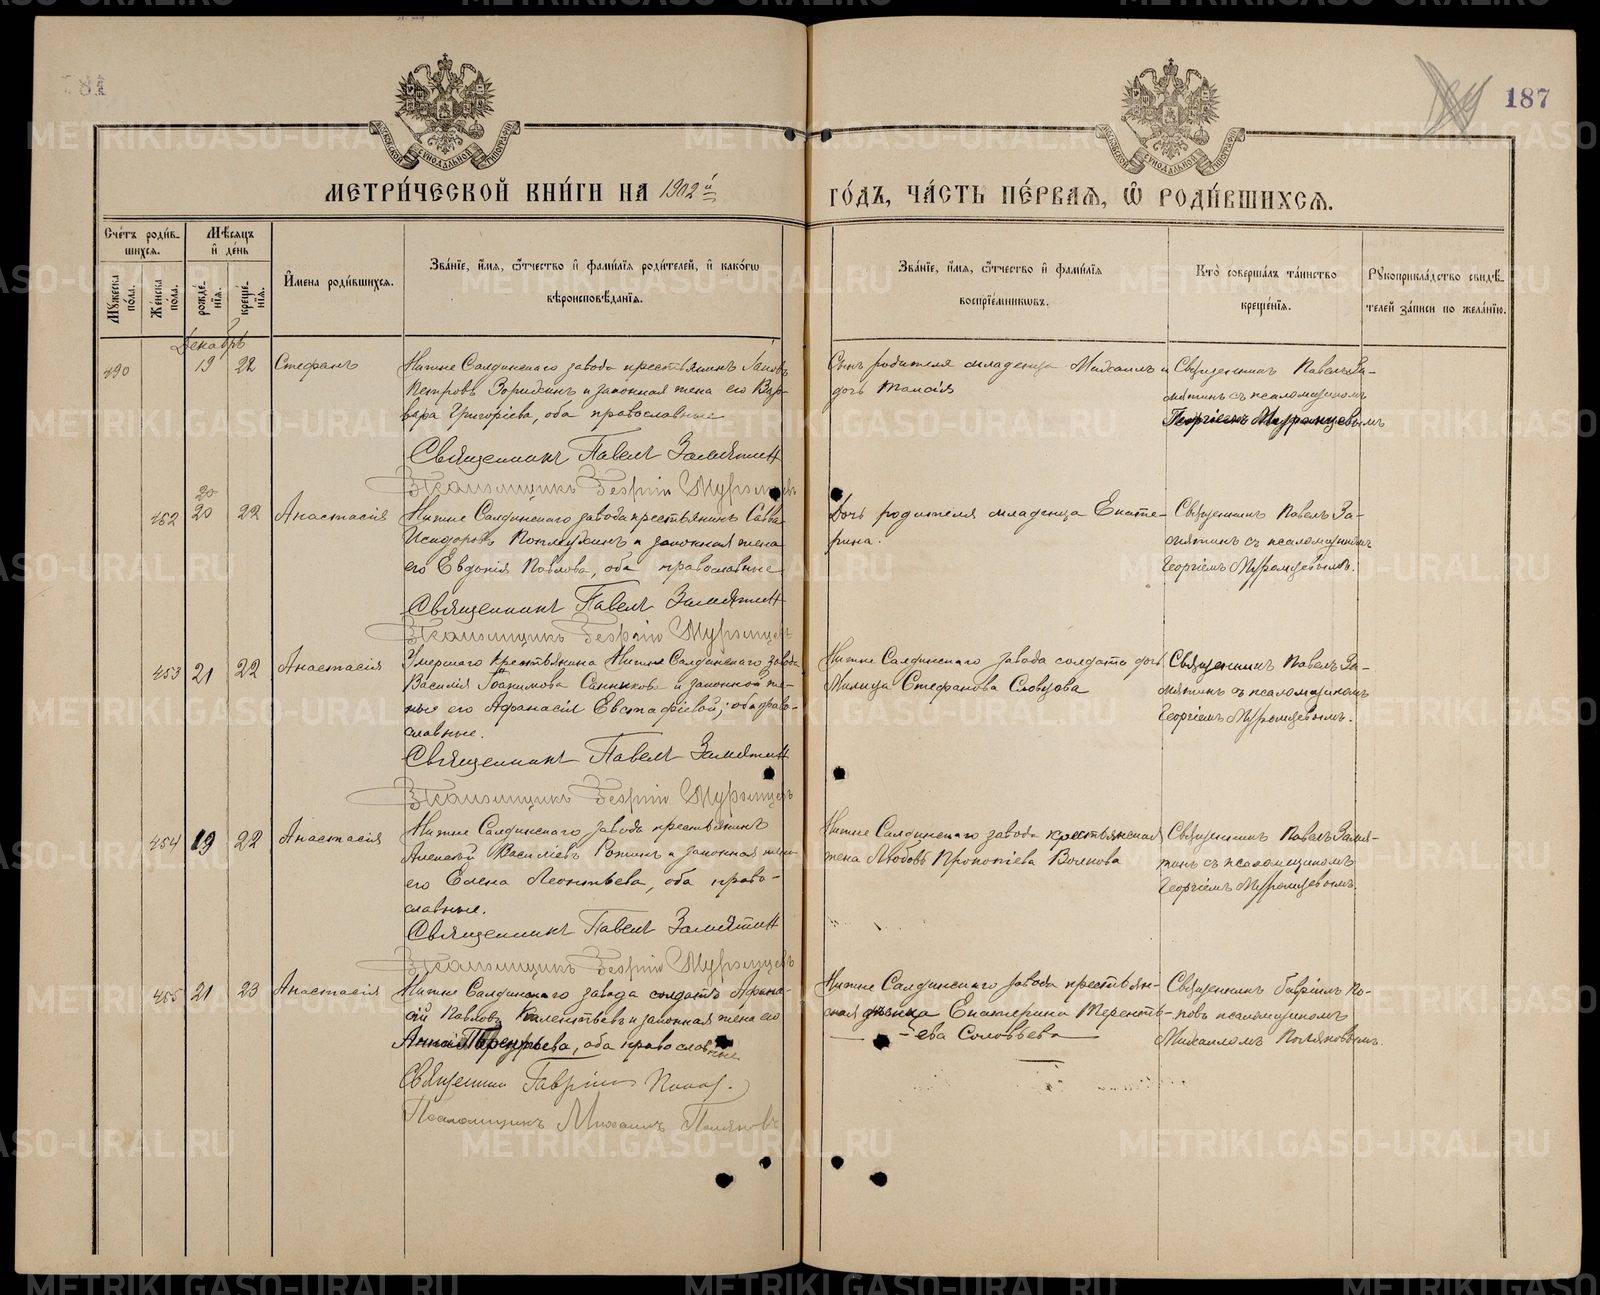 187
МЕТРИ́ЧЕСКОЙ КНИ́ГИ НА 1902й
ГО́ДЪ, ЧА́СТЬ ПЕ́РВАЯ, Ѽ РОДИ́ВШИХСЯ.
Сче́тъ роди́в-
шихся.
Мѣ́сяцъ
и҆ де́нь
Му́жеска по́ла.
Же́нска по́ла.
рожде́-
нїѧ.
креще́-
нїѧ.
И҆мена роди́вшихся.
Зва́нїе, и҆́мѧ, ѻ҆́тчество и҆ фами́лїѧ роди́телей, и҆ како́гѡ
вѣроисповѣ́данїѧ.
Зва́нїе, и҆́мѧ, ѻ҆́тчество и҆ фами́лїѧ
воспрїе́мниковъ.
Кто̀ соверша́лъ та́инство
креще́нїѧ.
Рукоприкла́дство свидѣ́-
телей за́писи по жела́нїю.
Декабрь
490 19 22 Стефанъ
Нижне Салдинскаго завода крестьянинъ Іаковъ
Петровъ Зорихинъ и законная жена его Вар-
вара Григоріева, оба православные
Священникъ Павелъ Замятин
Псаломщикъ Георгій Муромцевъ
Сынъ родителя младенца Михаилъ и
дочь Таисія
Священникъ Павелъ За-
мятинъ съ псаломщикомъ
Георгіемъ Муромцевымъ
20
452 20 22 Анастасія
Нижне Салдинскаго завода крестьянинъ Савва
Исидоровъ и законная жена
его Евдокія Павлова, оба православные
Священникъ Павелъ Замятин
Псаломщикъ Георгій Муромцевъ
Дочь родителя младенца Екате-
рина.
Священникъ Павелъ За-
мятинъ съ псаломщикомъ
Георгіемъ Муромцевымъ.
453 21 22 Анастасія
Умершаго крестьянина Нижне Салдинскаго завода
Василія Іоакимова Санникова и законной же-
ны его Афанасіи Евстафіевой; оба право-
славные.
Священникъ Павелъ Замятин
Псаломщикъ Георгій Муромцевъ
Нижне Салдинскаго завода солдата дочь
Милица Стефанова Словцова
Священникъ Павелъ За-
мятинъ съ псаломщикомъ
Георгіемъ Муромцевымъ.
454 19 22 Анастасія
Нижне Салдинскаго завода крестьянинъ
Алексѣй Василіевъ и законная жена
его Елена Леонтьева, оба право-
славные.
Священникъ Павелъ Замятин
Псаломщикъ Георгій Муромцевъ
Нижне Салдинскаго завода крестьянская
жена Любовь Прокопіева Волкова
Священникъ Павелъ Замя-
тинъ съ псаломщикомъ
Георгіемъ Муромцевымъ.
455 21 23 Анастасія
Нижне Салдинскаго завода солдатъ Афана-
сій Павловъ и законная жена его
Анна Терентьева, оба православные
Священникъ Гавріилъ Поповъ.
Псаломщикъ Михаилъ Поляковъ
Нижне Салдинскаго завода крестьян-
ская дѣвица Екатерина Теренть-
ева Соловьева
Священникъ Гавріилъ По-
повъ псаломщикомъ
Михаиломъ Поляковымъ.